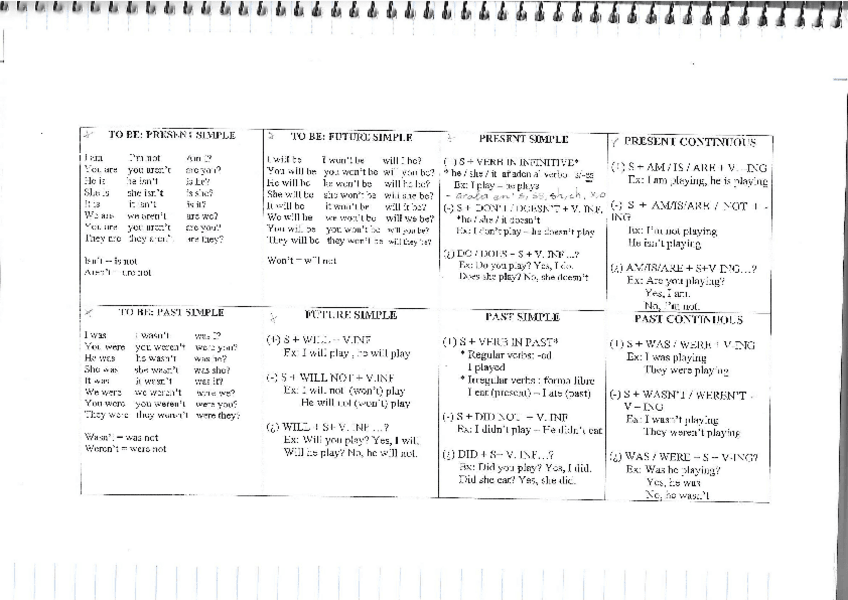 TO BE: PRESENT SIMPLE
I am I'm not Am I?
You are you aren't are you?
He is he isn't is he?
She is she isn't is she?
It is it isn't is it?
We are we aren't are we?
You are you aren't are you?
They are they aren't are they?
Isn't = is not
Aren't = are not
TO BE: FUTURE SIMPLE
I will be I won't be will I be?
You will be you won't be will you be?
He will be he won't be will he be?
She will be she won't be will she be?
It will be it won't be will it be?
We will be we won't be will we be?
You will be you won't be will you be?
They will be they won't be will they be?
Won't = will not
PRESENT SIMPLE
(+) S + VERB IN INFINITIVE*
* he / she / it añadon al verbo -s/-es
Ex: I play – he plays
(-) S + DON'T / DOESN'T + V. INF.
*he / she / it doesn't
Ex: I don't play – he doesn't play
(¿) DO / DOES + S + V. INF...?
Ex: Do you play? Yes, I do.
Does she play? No, she doesn't
PRESENT CONTINUOUS
(+) S + AM / IS / ARE + V. –ING
Ex: I am playing, he is playing
(-) S + AM/IS/ARE / NOT + -
ING
Ex: I'm not playing
He isn't playing
(¿) AM/IS/ARE + S+V ING…?
Ex: Are you playing?
Yes, I am.
No, I'm not.
TO BE: PAST SIMPLE
I was i wasn't was I?
You were you weren't were you?
He was he wasn't was he?
She was she wasn't was she?
It was it wasn't was it?
We were we weren't were we?
You were you weren't were you?
They were they weren't were they?
Wasn't = was not
Weren't = were not
FUTURE SIMPLE
(+) S + WILL + V.INF
Ex: I will play , he will play
(-) S + WILL NOT + V.INF
Ex: I will not (won't) play
He will not (won't) play
(¿) WILL + S+ V. INF …?
Ex: Will you play? Yes, I will.
Will he play? No, he will not.
PAST SIMPLE
(+) S + VERB IN PAST*
* Regular verbs: -ed
I played
* Irregular verbs : forma libre
I eat (present) – I ate (past)
(-) S + DID NOT + V. INF
Ex: I didn't play – He didn't eat
(¿) DID + S+ V. INF…?
Ex: Did you play? Yes, I did.
Did she eat? Yes, she did.
PAST CONTINUOUS
(+) S + WAS / WERE + V-ING
Ex: I was playing
They were playing
(-) S + WASN'T / WEREN'T -
V – ING
Ex: I wasn't playing
They weren't playing
(¿) WAS / WERE + S + V-ING?
Ex: Was he playing?
Yes, he was
No, he wasn't